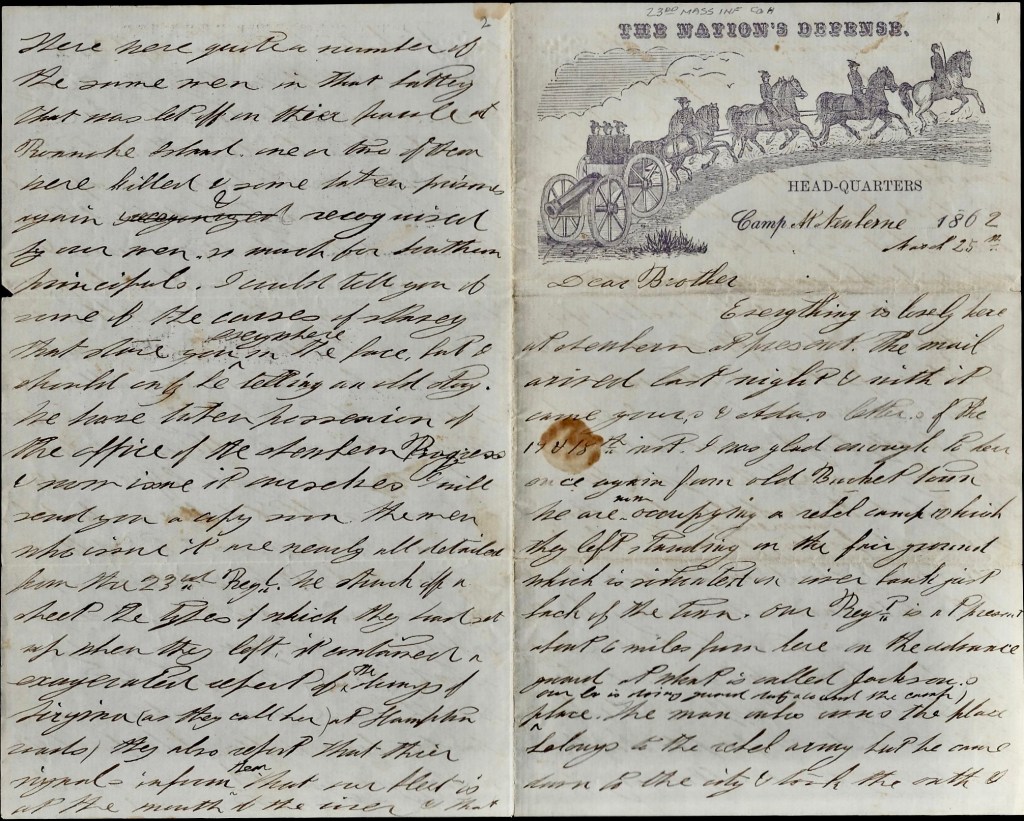 23RD MASS INF CO A
1
THE NATION'S DEFENSE.
HEAD-QUARTERS
Camp At Newberne 1862
March 25th
Dear Brother
Everything is lovely here
at Newbern at present. The mail
arived last night & with it
came yours, & Adas letters of the
17 & 18th inst. I was glad enough to hear
once again from old Bucket town
We are now occupying a rebel camp which
they left standing on the fair ground
which is situated on river bank just
back of the town. Our Regt is at present
about 6 miles from here on the advance
guard at what is called Jackson,s
our Co is doing guard duty around the camp)
place. The man who owns the place
belongs to the rebel army but he came
down to the city & took the oath &
2
There were quite a number of
the same men in that battery
that was let off on thier parole at
Roanoke Island. one or two of them
were killed & some taken prisoners
again & recognised
by our men. so much for southern
principals. I could tell you of
some of the curses of slavery
that stare you everywhere in the face, but I
should only be telling an old story.
We have taken possession of
the office of the Newbern Progress
& now issue it ourselves I will
send you a copy soon the men
who issue it are nearly all detailed
from the 23rd Regt. We struck off a
sheet the types of which they had set
up when they left. it contained a
exagerated report of the doings of
Virginia (as they call her) at Hampton
roads) they also report that thier
signals inform them that our fleet is
at the mouth of the river & that